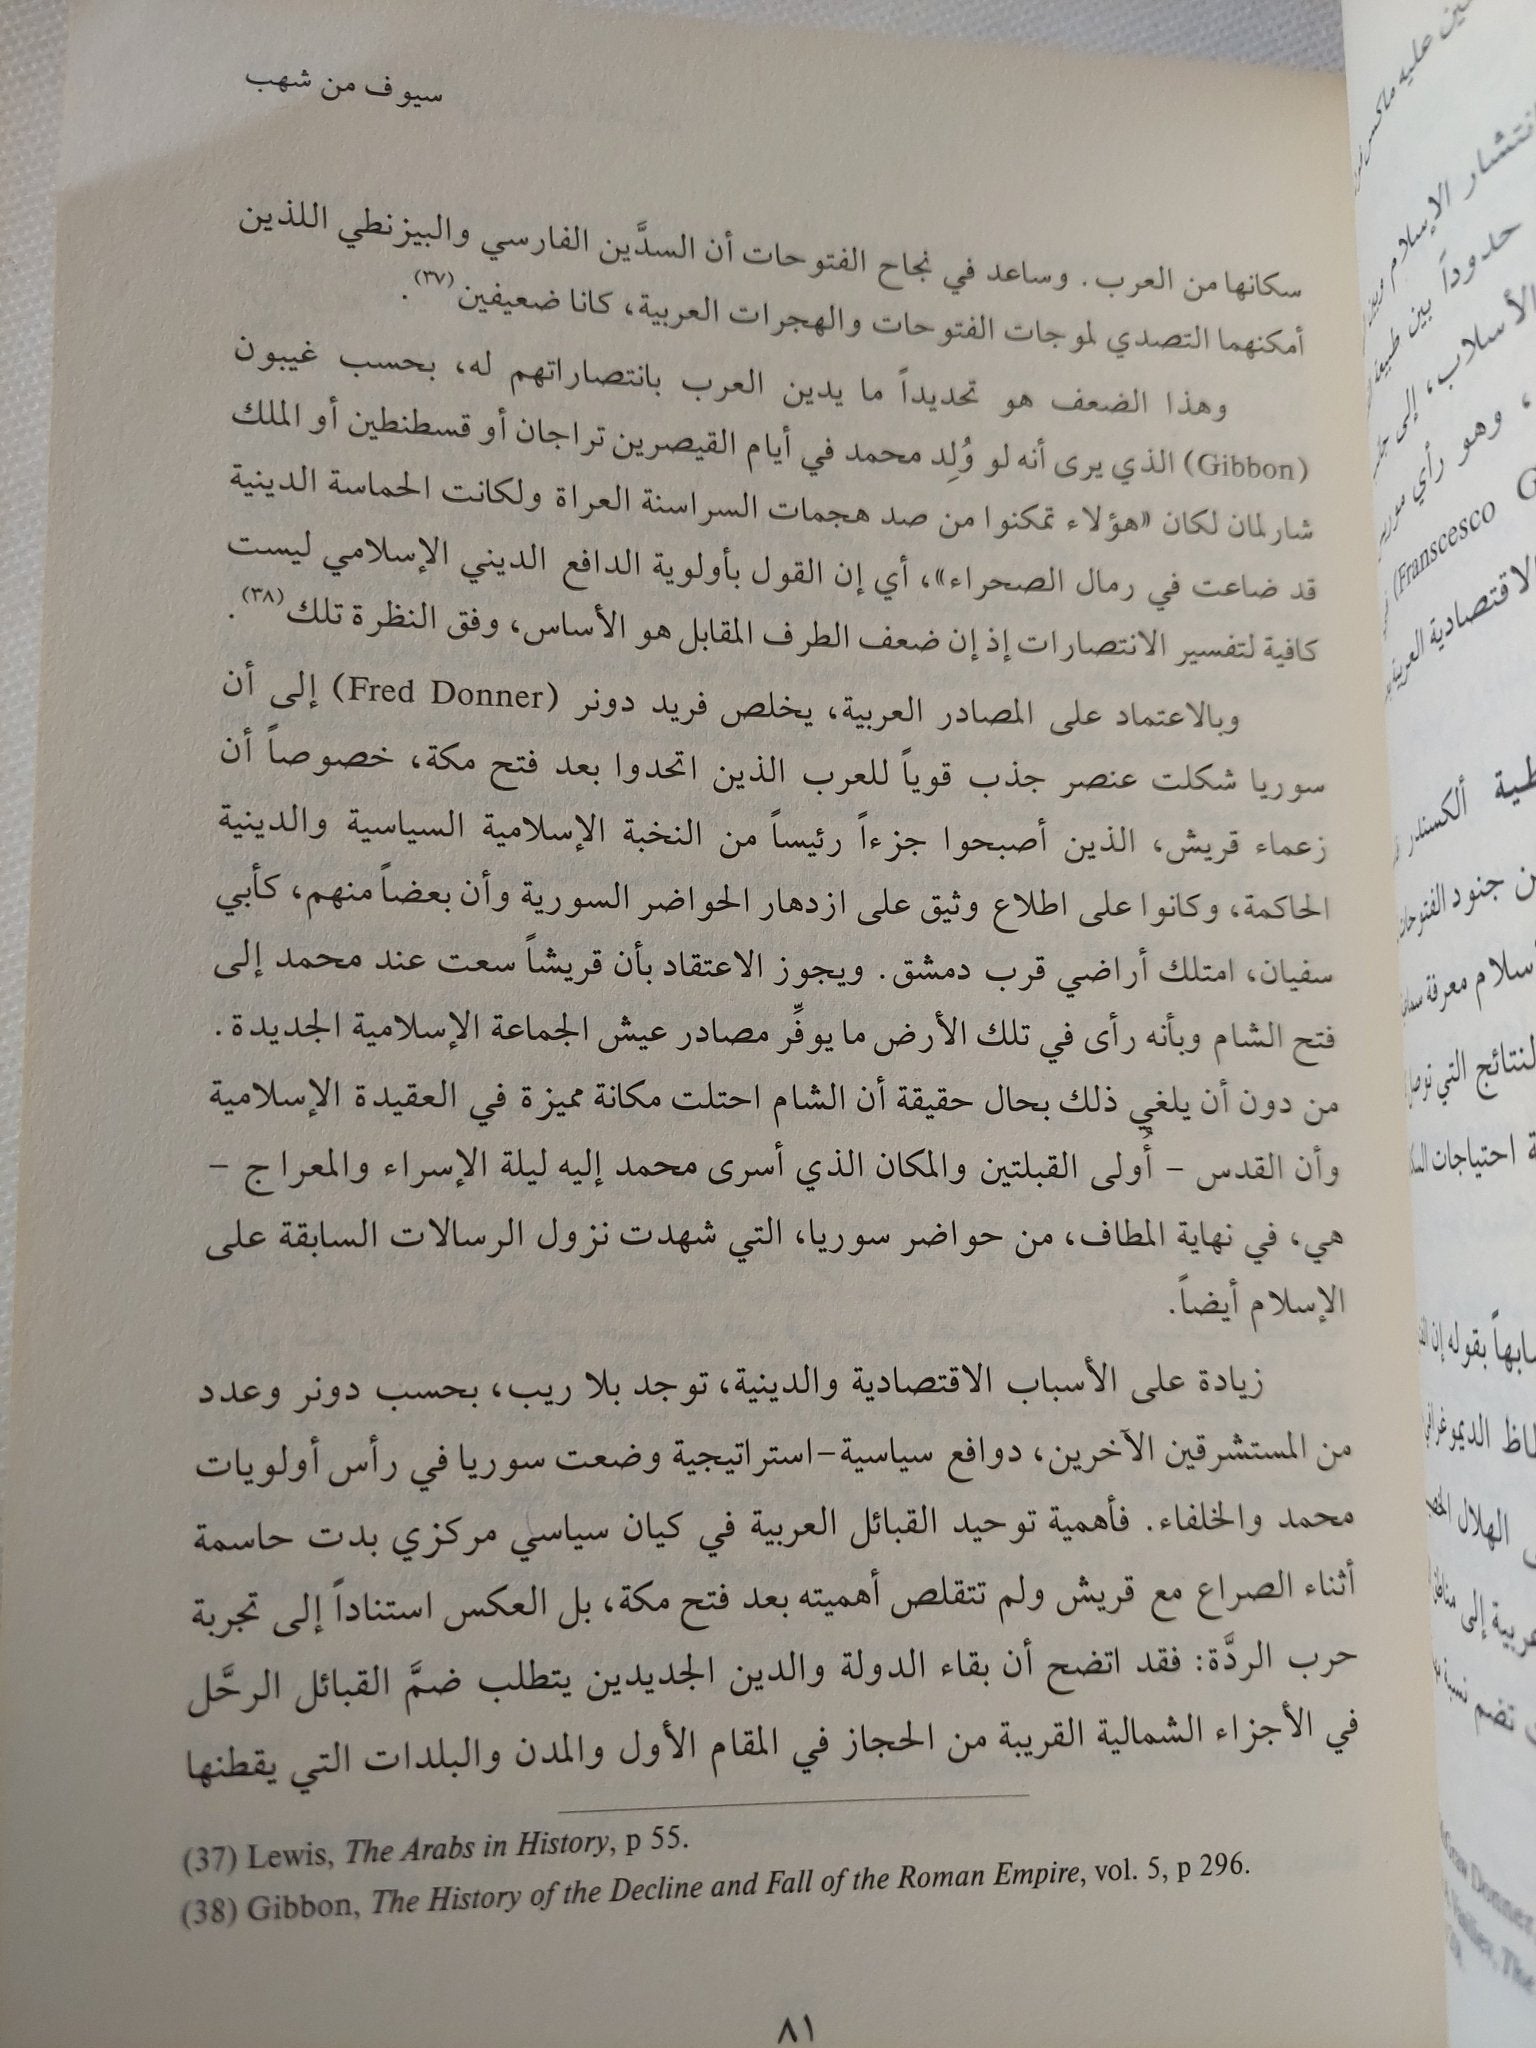 سيوف من شهب
سكانها من العرب. وساعد في نجاح الفتوحات أن السدَّين الفارسي والبيزنطي اللذين
أمكنهما التصدي لموجات الفتوحات والهجرات العربية، كانا ضعيفين(٣٧).
وهذا الضعف هو تحديداً ما يدين العرب بانتصاراتهم له، بحسب غيبون
(Gibbon) الذي يرى أنه لو وُلِد محمد في أيام القيصرين تراجان أو قسطنطين أو الملك
شارلمان لكان «هؤلاء تمكنوا من صد هجمات السراسنة العراة ولكانت الحماسة الدينية
قد ضاعت في رمال الصحراء»، أي إن القول بأولوية الدافع الديني الإسلامي ليست
كافية لتفسير الانتصارات إذ إن ضعف الطرف المقابل هو الأساس، وفق النظرة تلك(٣٨).
وبالاعتماد على المصادر العربية، يخلص فريد دونر (Fred Donner) إلى أن
سوريا شكلت عنصر جذب قوياً للعرب الذين اتحدوا بعد فتح مكة، خصوصاً أن
زعماء قريش، الذين أصبحوا جزءاً رئيساً من النخبة الإسلامية السياسية والدينية
الحاكمة، وكانوا على اطلاع وثيق على ازدهار الحواضر السورية وأن بعضاً منهم، كأبي
سفيان، امتلك أراضي قرب دمشق. ويجوز الاعتقاد بأن قريشاً سعت عند محمد إلى
فتح الشام وبأنه رأى في تلك الأرض ما يوفِّر مصادر عيش الجماعة الإسلامية الجديدة.
من دون أن يلغي ذلك بحال حقيقة أن الشام احتلت مكانة مميزة في العقيدة الإسلامية
وأن القدس - أُولى القبلتين والمكان الذي أسرى محمد إليه ليلة الإسراء والمعراج -
هي، في نهاية المطاف، من حواضر سوريا، التي شهدت نزول الرسالات السابقة على
الإسلام أيضاً.
زيادة على الأسباب الاقتصادية والدينية، توجد بلا ريب، بحسب دونر وعدد
من المستشرقين الآخرين، دوافع سياسية-استراتيجية وضعت سوريا في رأس أولويات
محمد والخلفاء. فأهمية توحيد القبائل العربية في كيان سياسي مركزي بدت حاسمة
أثناء الصراع مع قريش ولم تتقلص أهميته بعد فتح مكة، بل العكس استناداً إلى تجربة
حرب الردَّة: فقد اتضح أن بقاء الدولة والدين الجديدين يتطلب ضمَّ القبائل الرحَّل
في الأجزاء الشمالية القريبة من الحجاز في المقام الأول والمدن والبلدات التي يقطنها
(37) Lewis, The Arabs in History, p 55.
(38) Gibbon, The History of the Decline and Fall of the Roman Empire, vol. 5, p 296.
٨١
انتشار الإسلام
حدوداً بين طبيعة
الأسلاب، إلى
، وهو رأي
(Franscesco G
الاقتصادية العربية
ألكسندر
جنود الفتوحات
معرفة
النتائج التي
احتياجات
بقوله إن
الديموغرافي
الهلال
إلى
تضم نسبة
Donner,
The